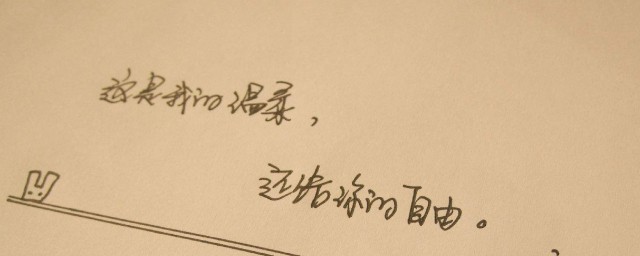 这是我的温柔，
还给你的自由。